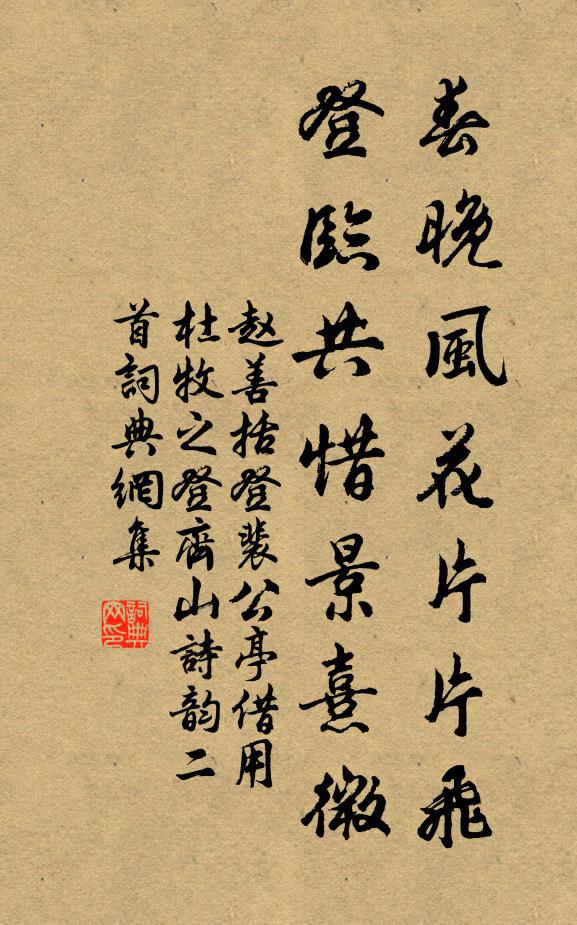 春晚風花片片飛
登臨共惜景熹微
赵善括登裴公亭借用
杜牧之登齊山詩韵二
首詞典網集
詞典
网印